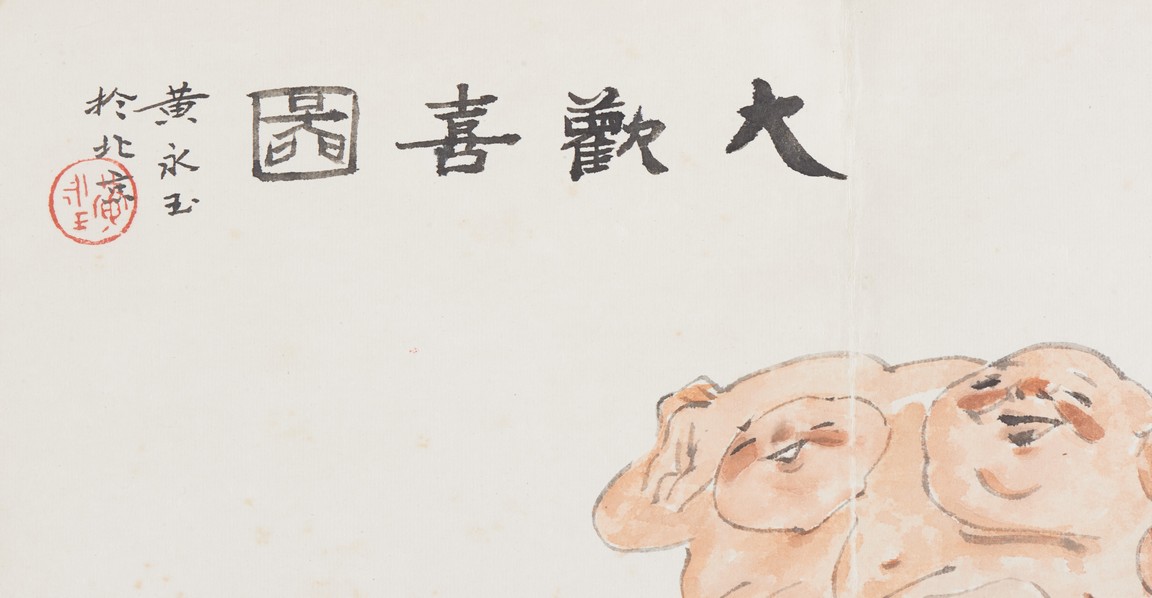 大歡喜圖
黃永玉
於北京
黃永玉